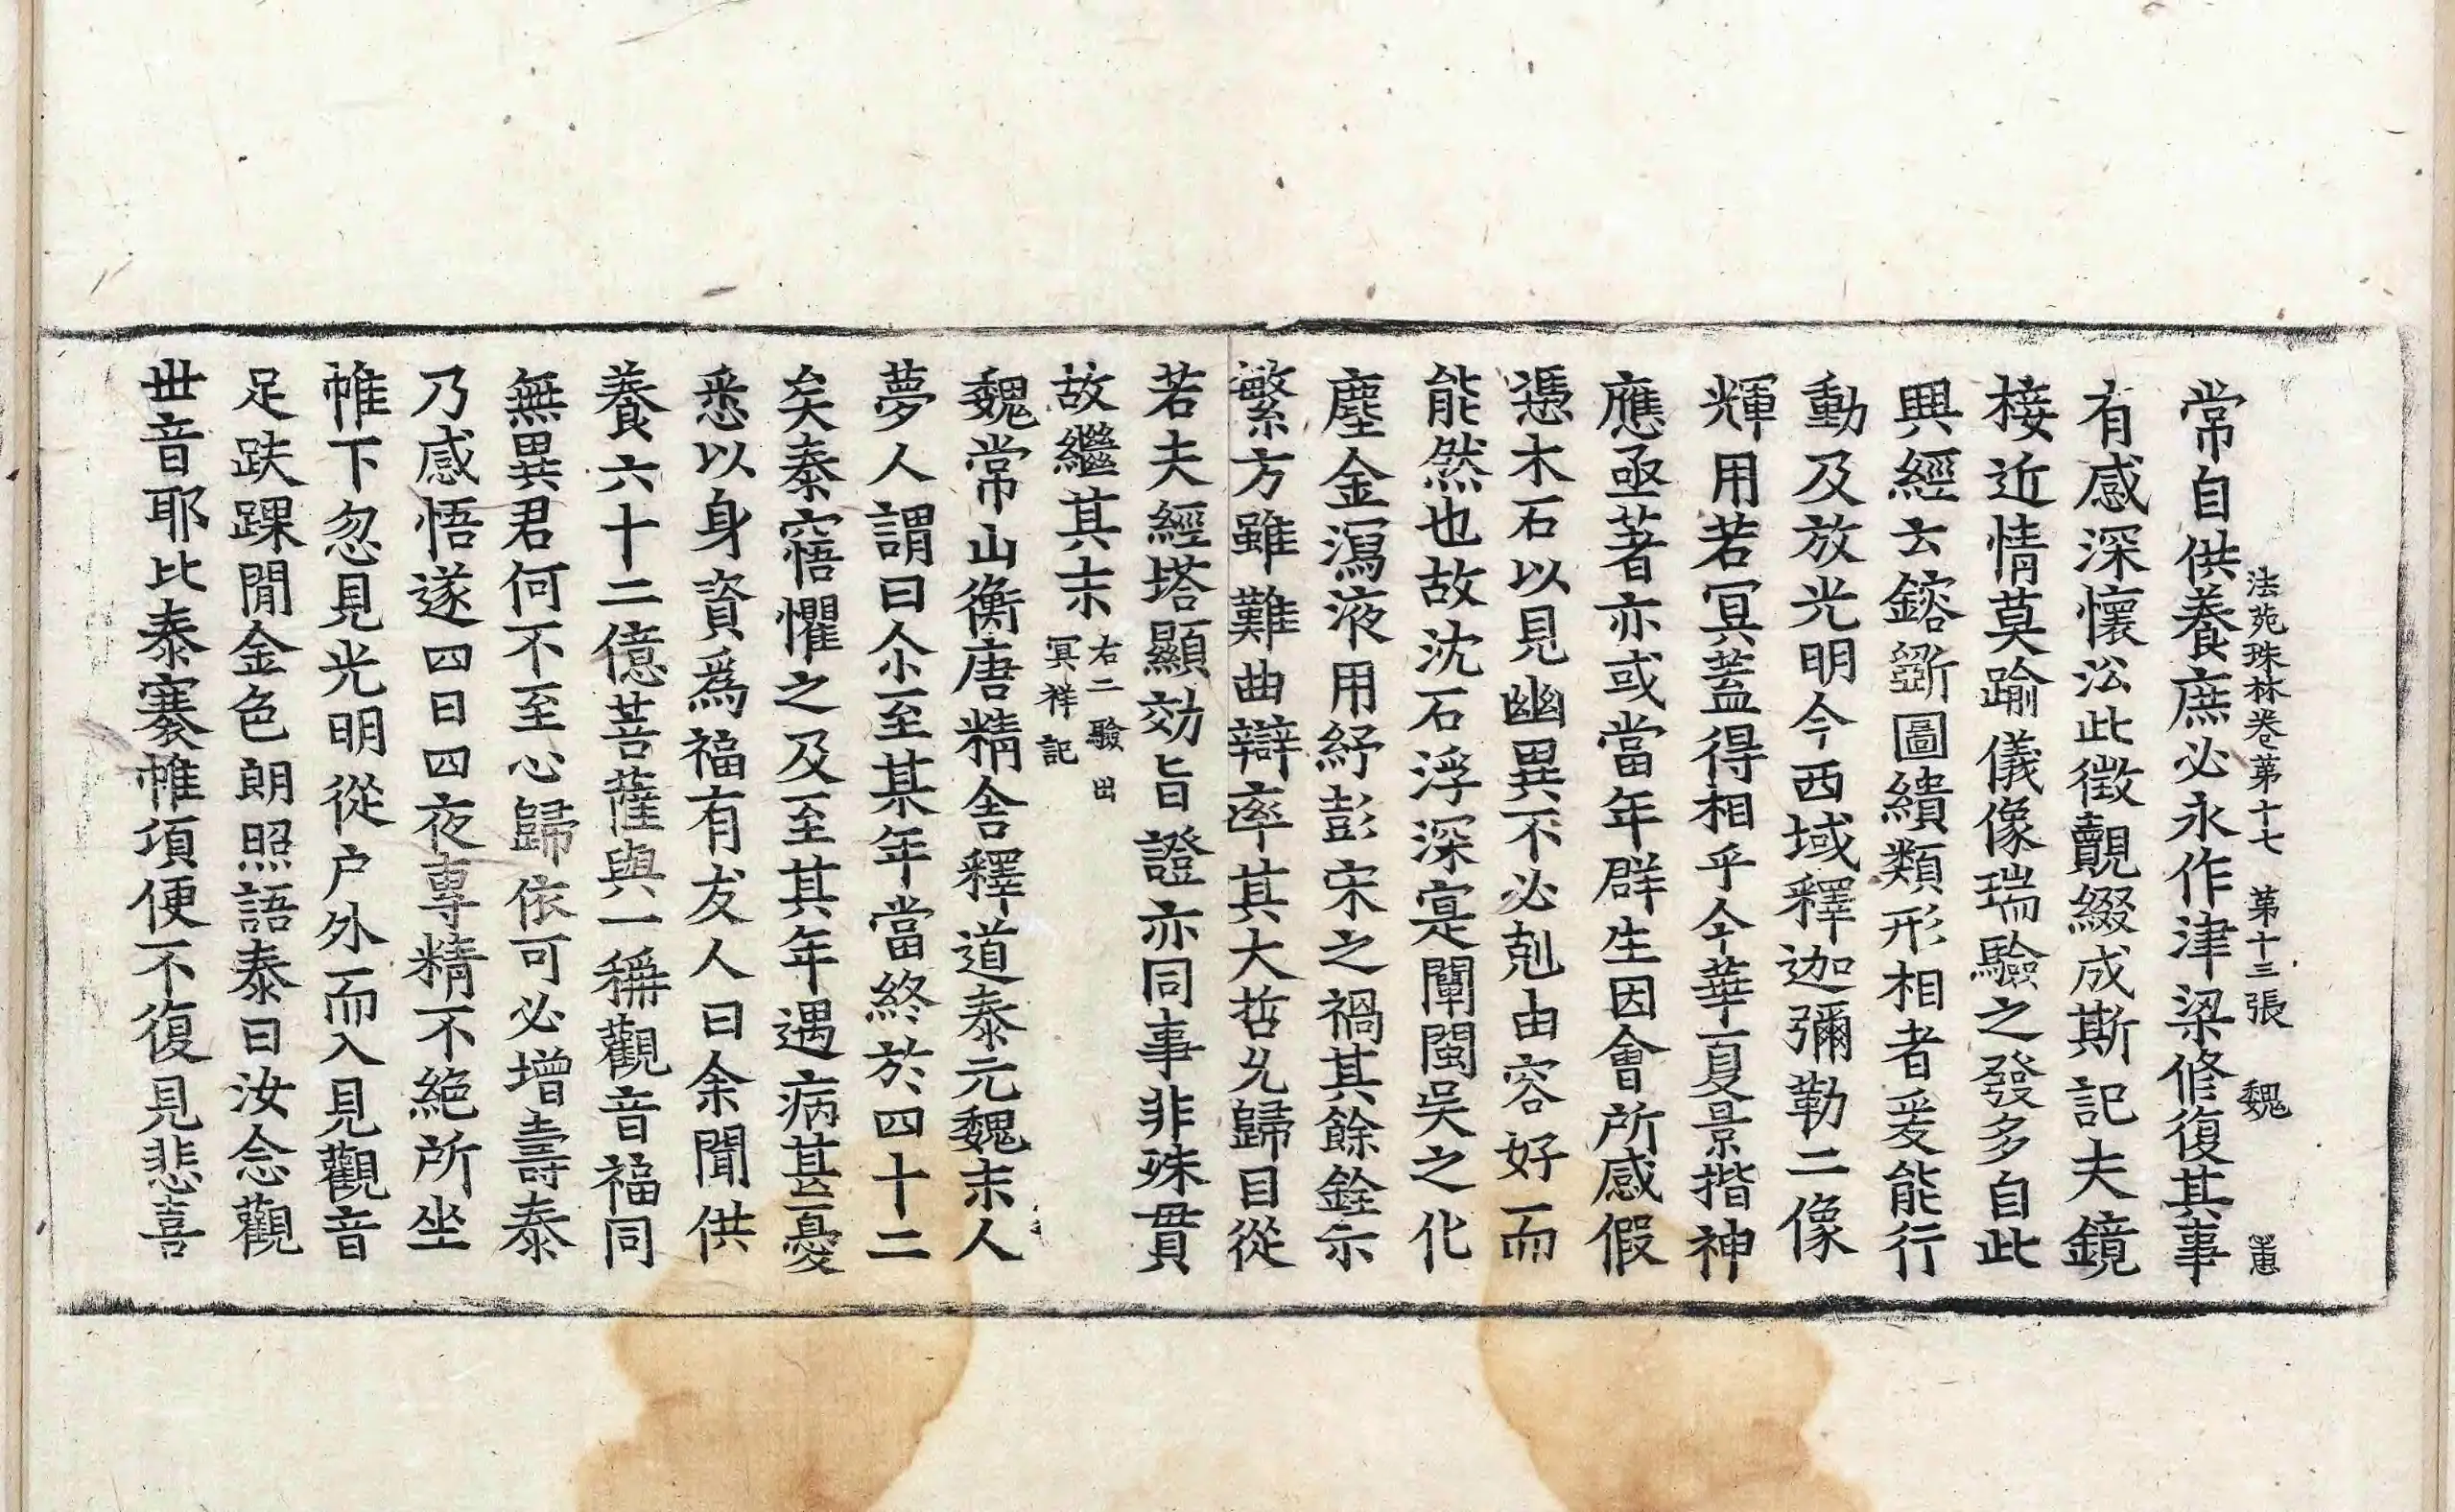 法苑珠林卷第十七 第十三張 魏
常自供養庶必永作津梁修復其事
有感深懷㳂此徵覿綴成斯記夫鏡
接近情莫踰儀像瑞驗之發多自此
興經云鎔斵圖繢類形相者爰能行
動及放光明今西域釋迦彌勒二像
輝用若冥蓋得相乎今華夏景揩神
應亟著亦或當年群生因會所感假
憑木石以見幽異不必剋由容好而
能然也故沈石浮深寔闡閩吳之化
塵金瀉液用紓彭宋之禍其餘銓示
繁方雖難曲辯率其大哲㒫歸目從
若夫經塔顯効旨證亦同事非殊貫
故繼其末 右二驗出冥祥記
魏常山衡唐精舍釋道泰元魏末人
夢人謂曰尒至某年當終於四十二
矣泰寤懼之及至其年遇病甚憂
悉以身資為福有友人曰余聞供
養六十二億菩薩與一稱觀音福同
無異君何不至心歸依可必增壽泰
乃感悟遂四日四夜專精不絕所坐
帷下忽見光明從户外而入見觀音
足趺踝閒金色朗照語泰曰汝念觀
世音耶比泰褰帷項便不復見悲喜